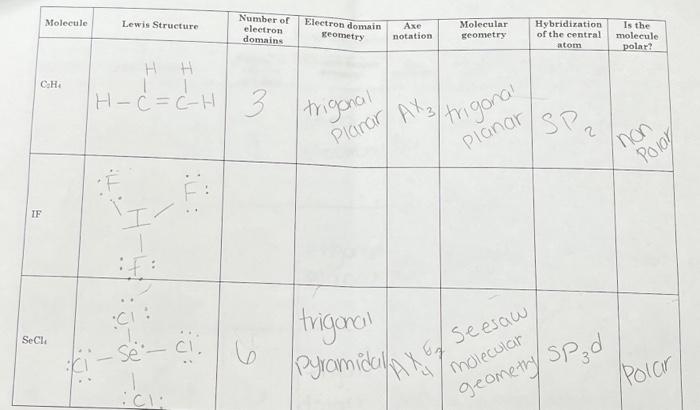 Molecule
Lewis Structure
Number of
electron
domains
Electron domain
geometry
Axe
notation
Molecular
geometry
Hybridization
of the central
atom
Is the
molecule
polar?
C₂H₄
H H
H - C = C - H
3
trigonal
Planar
AX₃
trigonal
Planar
SP₂
non
Polar
IF
F
F
I
F
SeCl₄
Cl
Cl - Se - Cl
Cl
6
trigonal
Pyramidal
Seesaw
molecular
geometry
SP₃d
Polar